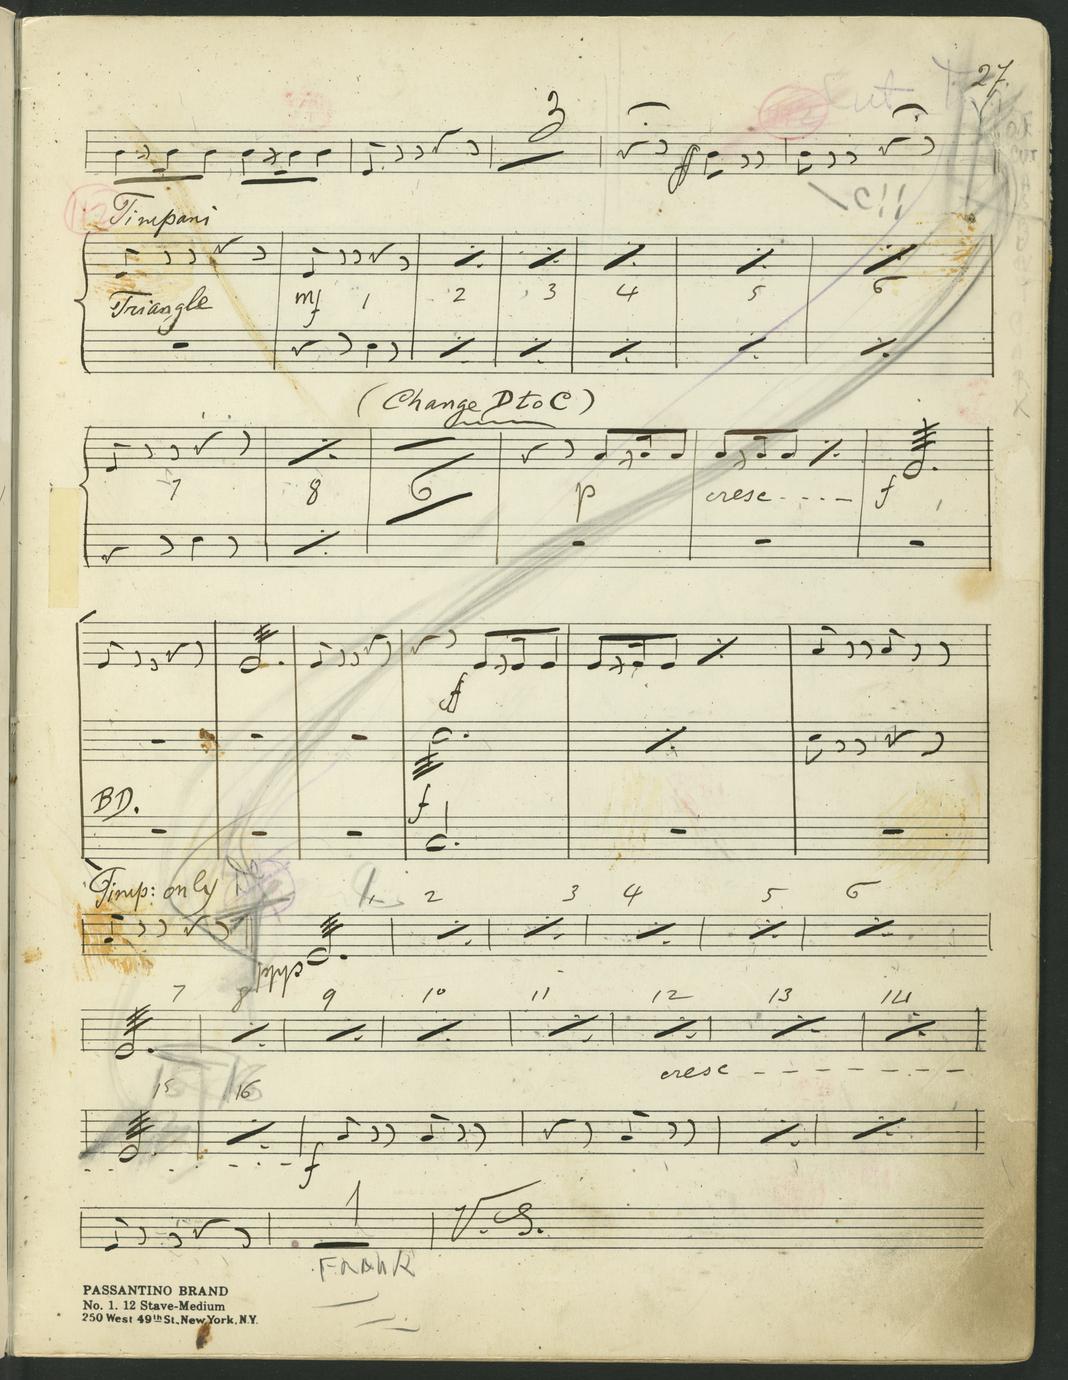 27.
Cut
3
f
112
Timpani
Triangle
mf 1 2 3 4 5 6
(Change D to C)
7 8 6 p cresc - - - - f
f
BD. f
Timp: only 2 3 4 5 6
ppp
7 8 9 10 11 12 13 14
cresc - - - - - - -
15 16
f
1 V.S.
FRANK
PASSANTINO BRAND
No. 1. 12 Stave-Medium
250 West 49th St., New York, N.Y.